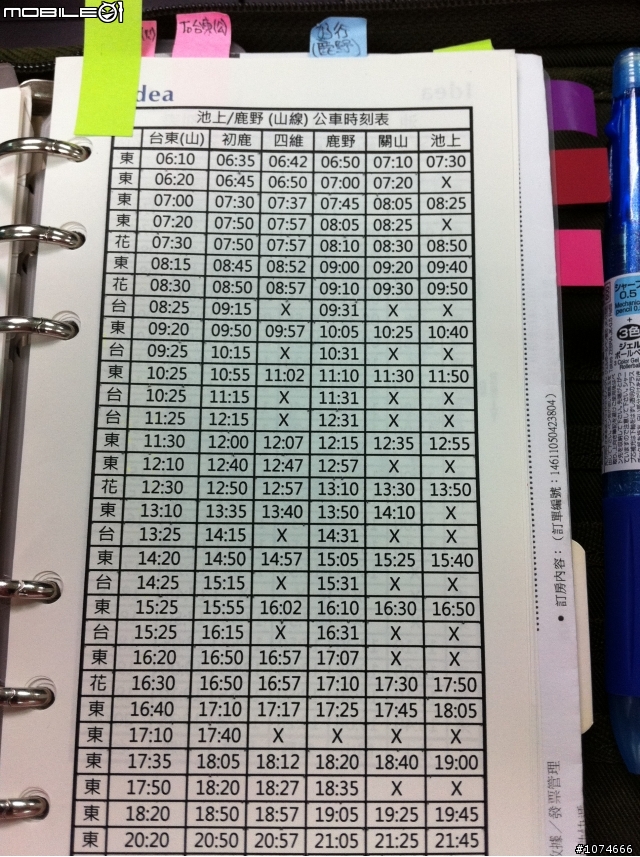 MOBILE01
To台東(公)
步行
(鹿野)
Idea
池上/鹿野 (山線) 公車時刻表
台東(山) 初鹿 四維 鹿野 關山 池上
東 06:10 06:35 06:42 06:50 07:10 07:30
東 06:20 06:45 06:50 07:00 07:20 X
東 07:00 07:30 07:37 07:45 08:05 08:25
東 07:20 07:50 07:57 08:05 08:25 X
花 07:30 07:50 07:57 08:10 08:30 08:50
東 08:15 08:45 08:52 09:00 09:20 09:40
花 08:30 08:50 08:57 09:10 09:30 09:50
台 08:25 09:15 X 09:31 X X
東 09:20 09:50 09:57 10:05 10:25 10:40
台 09:25 10:15 X 10:31 X X
東 10:25 10:55 11:02 11:10 11:30 11:50
台 10:25 11:15 X 11:31 X X
台 11:25 12:15 X 12:31 X X
東 11:30 12:00 12:07 12:15 12:35 12:55
東 12:10 12:40 12:47 12:57 X X
花 12:30 12:50 12:57 13:10 13:30 13:50
東 13:10 13:35 13:40 13:50 14:10 X
台 13:25 14:15 X 14:31 X X
東 14:20 14:50 14:57 15:05 15:25 15:40
台 14:25 15:15 X 15:31 X X
東 15:25 15:55 16:02 16:10 16:30 16:50
台 15:25 16:15 X 16:31 X X
東 16:20 16:50 16:57 17:07 X X
花 16:30 16:50 16:57 17:10 17:30 17:50
東 16:40 17:10 17:17 17:25 17:45 18:05
東 17:10 17:40 X X X X
東 17:35 18:05 18:12 18:20 18:40 19:00
東 17:50 18:20 18:27 18:35 X X
東 18:20 18:50 18:57 19:05 19:25 19:45
東 20:20 20:50 20:57 21:05 21:25 21:45
• 訂房內容：（訂單編號：14611050423804）
／發票管理
シャープ
0.5
Mechanical
pencil 0.5
+
3色
ジェル
ボールペン
3 Color Gel
Rollerball
#1074666